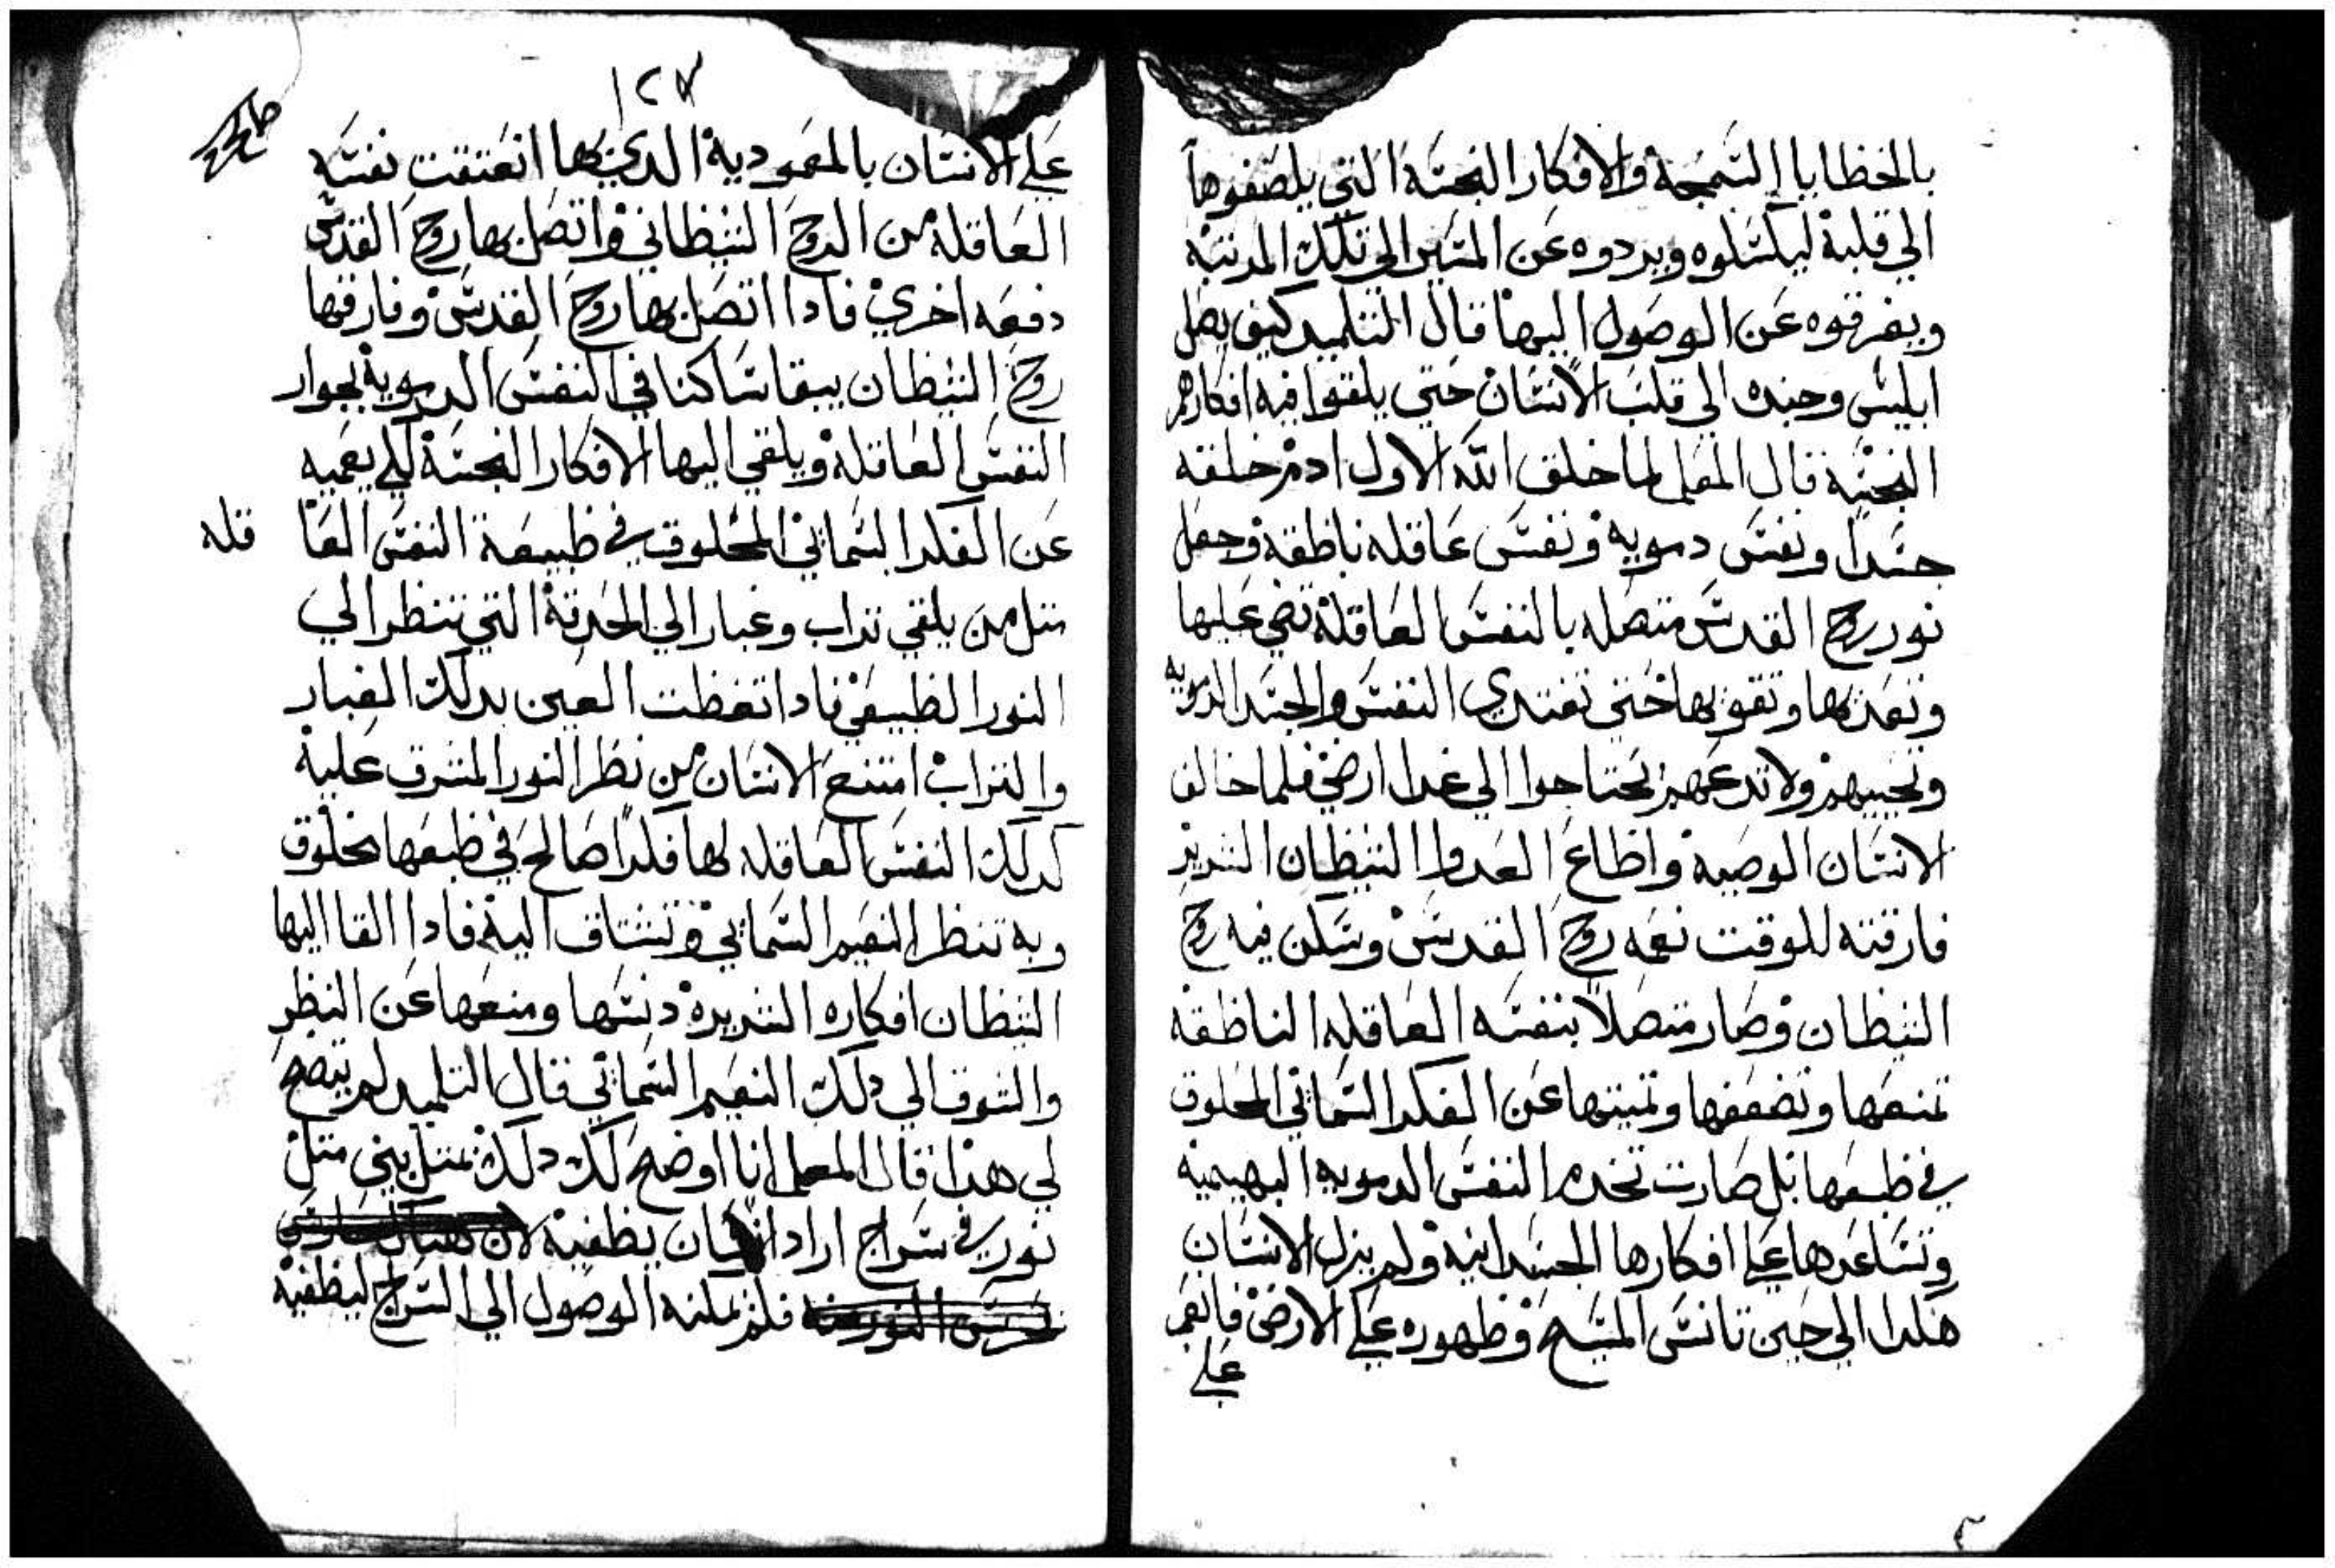 بالخطايا السمجة والافكار النجسة التي يلصقوها
الي قلبة ليكسلوه ويردوه عن المسير الي تلك المرتبة
ويفرقوه عن الوصول اليها قال التلميد كيف يصل
ابليس وجنده الي قلب الانسان حتي يلقوا فيه افكارهم
النجسة قال المعلم لما خلق الله الاول ادم خلقه
جسدا ونفس دموية ونفس عاقله ناطقة وجعل
نور روح القدس متصله بالنفس العاقلة تضي عليها
وتعزيها وتقويها حتي تغتدي النفس والجسد الدمويه
وتحييهم ولا تدعهم يحتاجوا الي غدا ارضي فلما خالف
الانسان الوصية واطاع العدوا الشيطان الشرير
فارقته للوقت نعمه روح القدس وسكن فيه روح
الشيطان وصار متصلا بنفسه العاقله الناطقه
تمنعها وتضعفها وتميتها عن الفكر السماني المخلوق
في طبعها بل صارت تخدم النفس الدمويه البهيمية
وتساعدها علي افكارها الجسدانية ولم يزل الانسان
هكدا الي حين تانس المسيح وظهوره علي الارض فانعم
علي
١٢٧
علي الانسان بالمعمودية الدي بها انعتقت نفسه
العاقلة من الروح الشيطاني واتصل بها روح القدس
دفعه اخري فادا اتصل بها روح القدس وفارقها
روح الشيطان يبقا ساكنا في النفس الدموية بجوار
النفس العاقلة ويلقي اليها الافكار النجسة لكي يعميه
عن الفكر السماني المخلوق في طبيعة النفس العا قله
متل من يلقي تراب وغبار الي الحدقة التي تنظر الي
النور الطبيعي فادا تغطت العين بدلك الغبار
والتراب امتنع الانسان من نظر النور المشرق علية
كدلك النفس العاقله لها فكرا صالح في طبعها مخلوق
وبه تنظر النعيم السماني وتشتاق الية فادا القا اليها
الشيطان افكاره الشريرة دنسها ومنعها عن النظر
والشوق الي دلك النعيم السماني قال التلميد لم يتضح
لي هدا قال المعلم انا اوضح لك دلك بمتل بيني متل
نور في سراج اراد انسان يطفية لان
فلم يمكنه الوصول الي السراج ليطفية